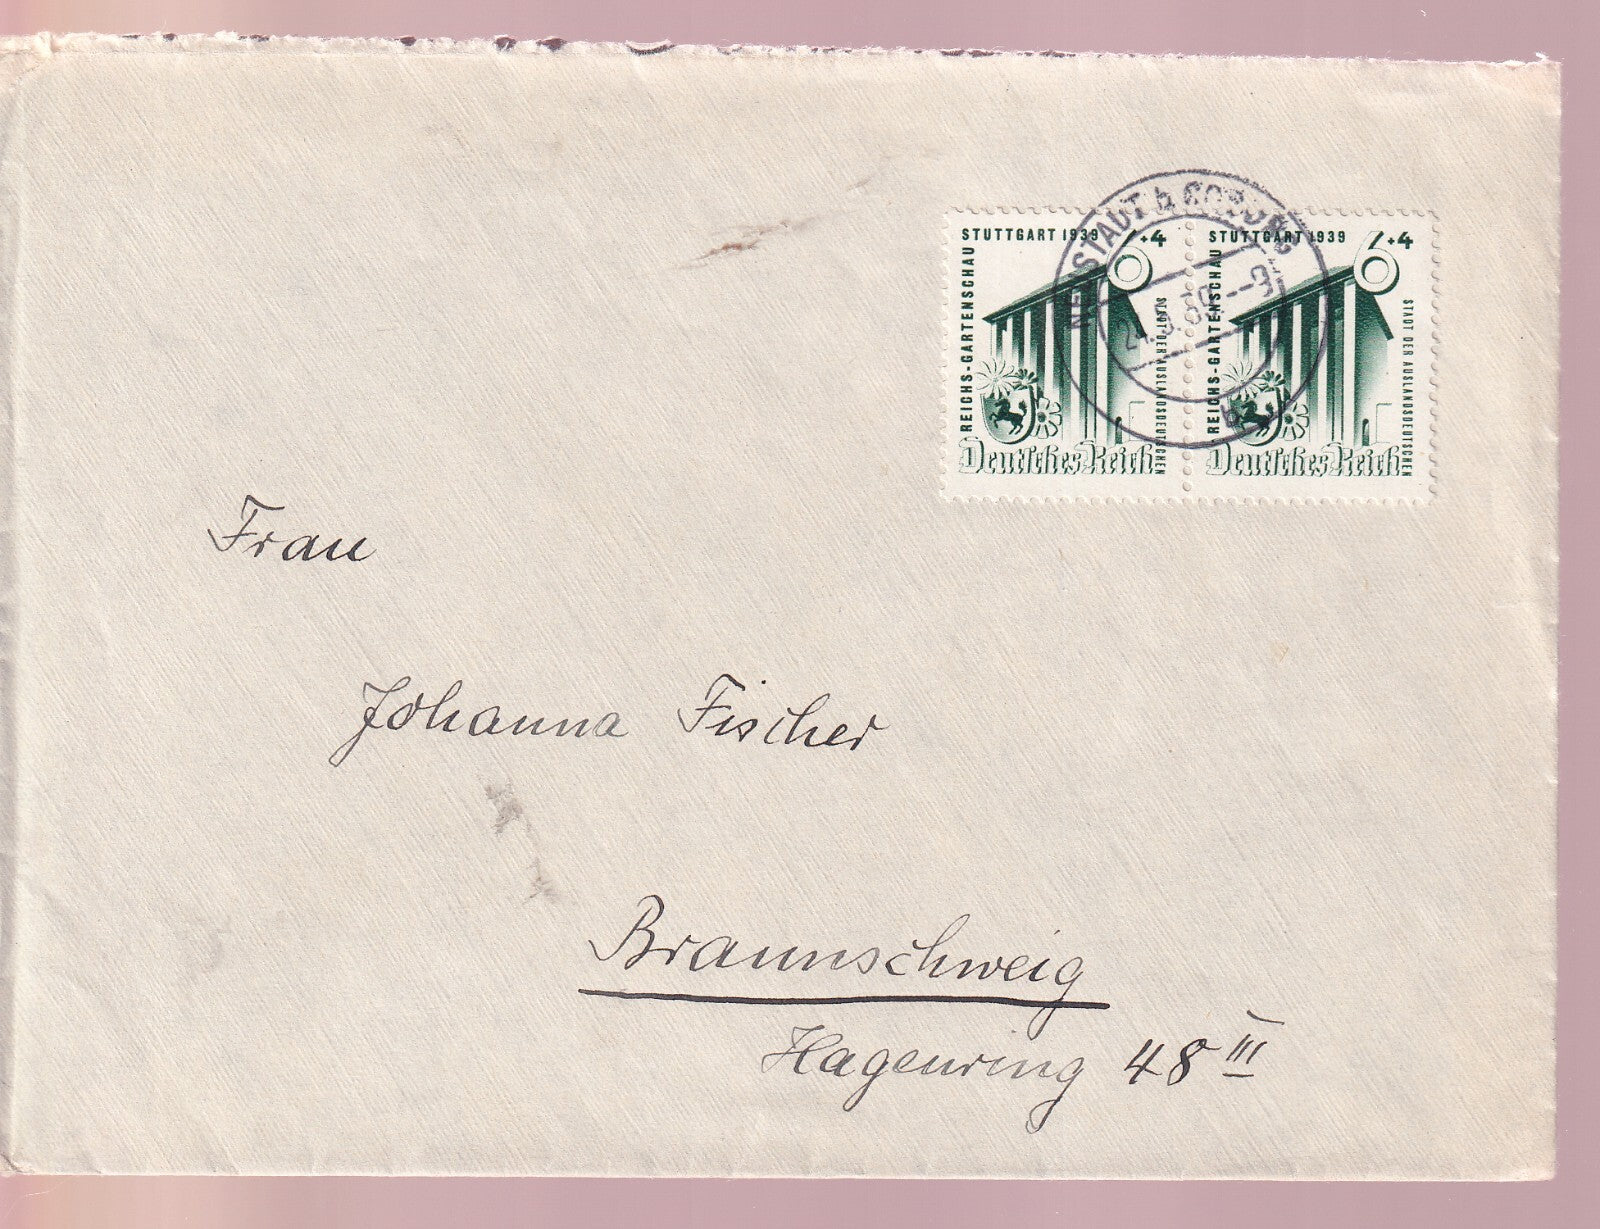 STUTTGART 1939
6+4
REICHS-GARTENSCHAU
STADT DER AUSLANDSDEUTSCHEN
Deutsches Reich
STUTTGART 1939
6+4
REICHS-GARTENSCHAU
STADT DER AUSLANDSDEUTSCHEN
Deutsches Reich
NEUSTADT b COBURG
Frau
Johanna Fischer
Braunschweig
Hagenring 48 III